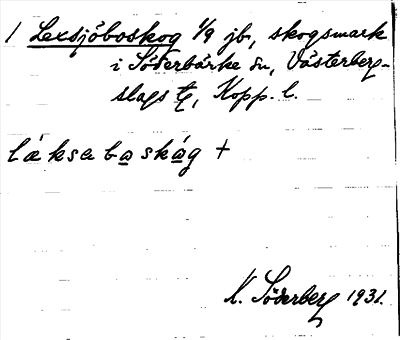 1 Lexsjöboskog 1/9 jb, skogsmark
i Söderbärke sn, Västerberg-
slags tg, Kopp. l.
láksabaskág +
K. Söderberg 1931.